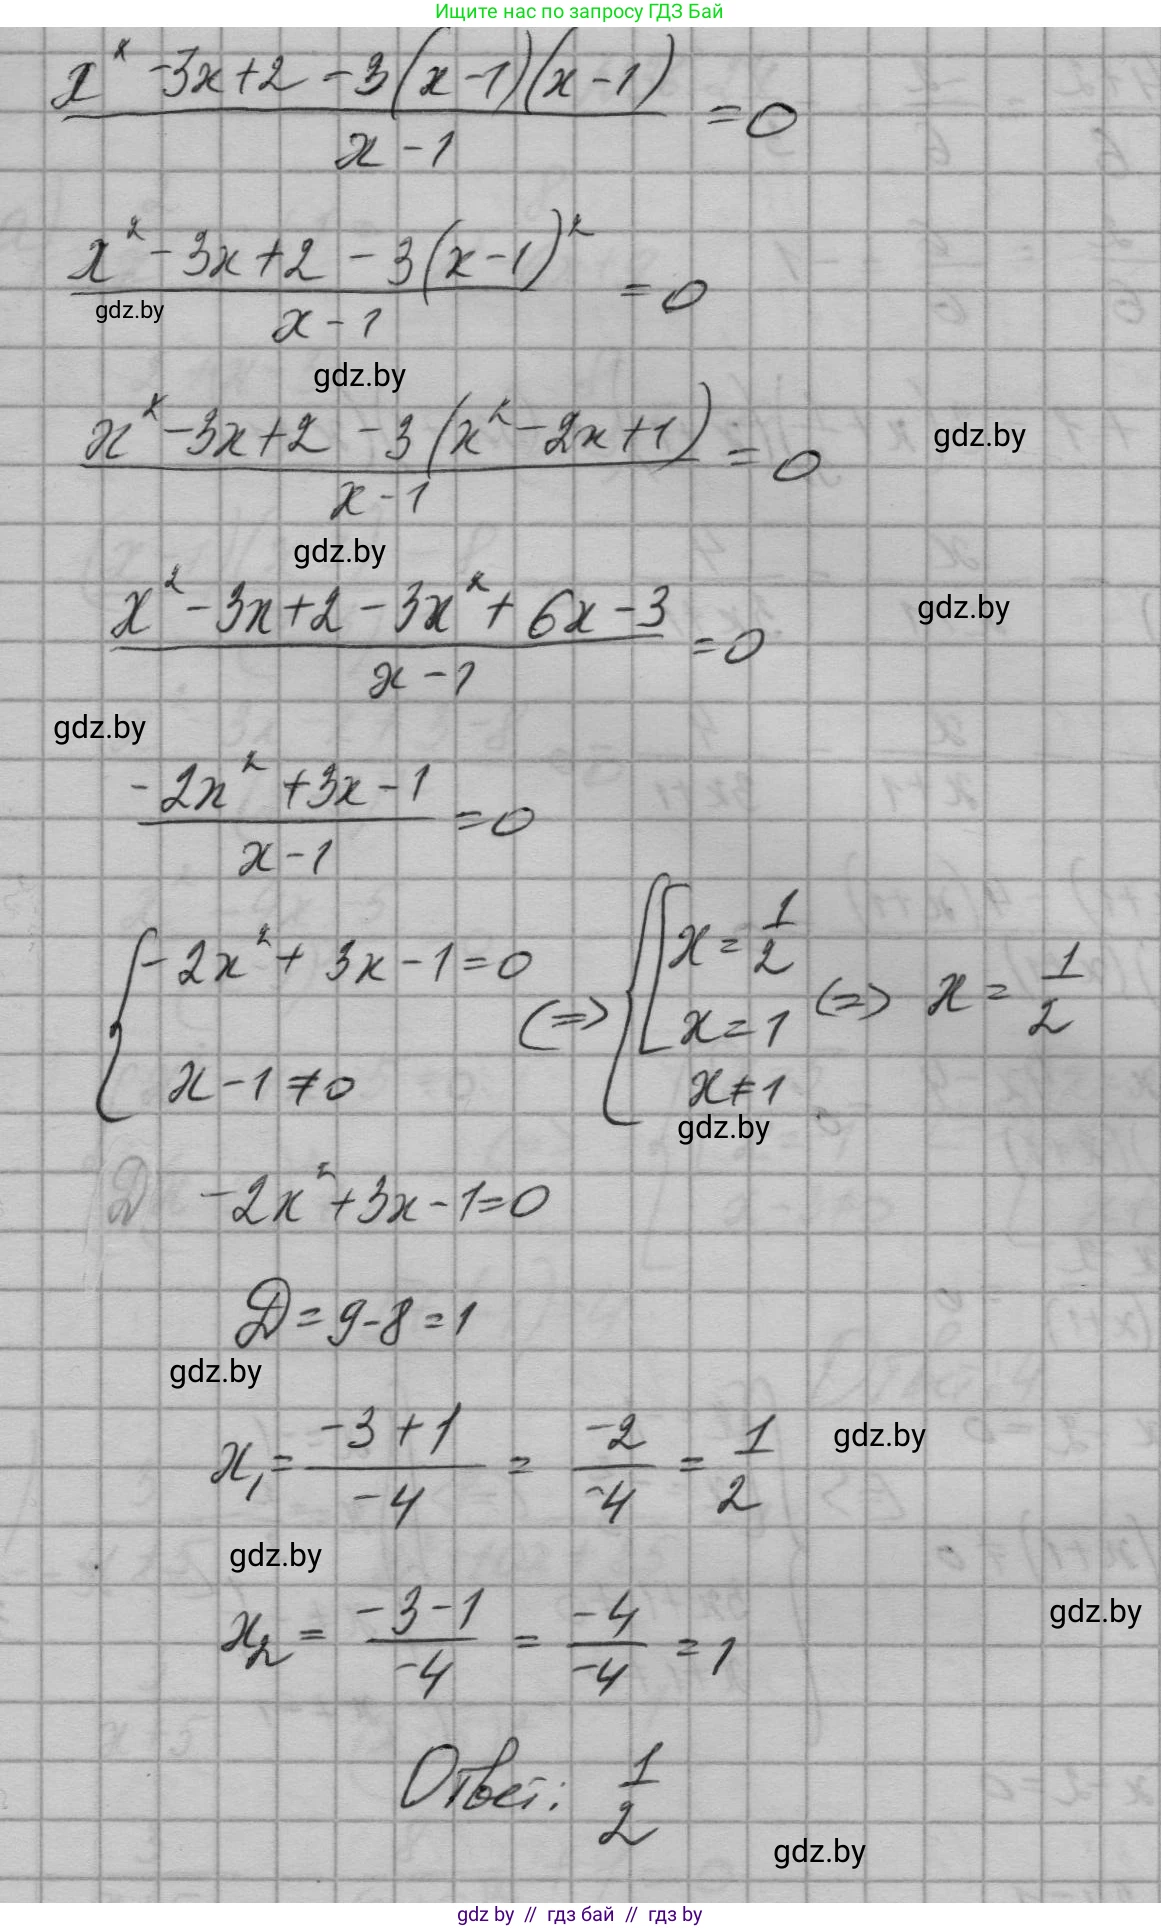 Ищите нас по запросу ГДЗ Бай
(x² - 3x + 2 - 3(x - 1)(x - 1)) / (x - 1) = 0
(x² - 3x + 2 - 3(x - 1)²) / (x - 1) = 0
gdz.by
gdz.by
(x² - 3x + 2 - 3(x² - 2x + 1)) / (x - 1) = 0
gdz.by
gdz.by
(x² - 3x + 2 - 3x² + 6x - 3) / (x - 1) = 0
gdz.by
gdz.by
(-2x² + 3x - 1) / (x - 1) = 0
{ -2x² + 3x - 1 = 0; x - 1 ≠ 0 (=> { [ x = 1/2; x = 1; x ≠ 1 (=> x = 1/2
gdz.by
-2x² + 3x - 1 = 0
D = 9 - 8 = 1
gdz.by
x₁ = (-3 + 1) / (-4) = (-2) / (-4) = 1/2
gdz.by
gdz.by
x₂ = (-3 - 1) / (-4) = (-4) / (-4) = 1
gdz.by
Ответ: 1/2
gdz.by
gdz.by // гдз бай // гдз by